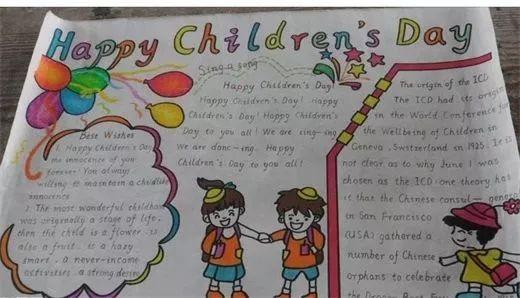 Happy Children's Day
Sing a song
Happy Children's Day!
Happy Children's Day! Happy
Children's Day! Happy Children's
Day to you all! We are sing-ing
We are danc-ing. Happy
Children's Day to you all!
Best Wishes
1. Happy Children's Day
the innocence of you
forever! You always
willing to maintain a childlike
innocence
2. The most wonderful childhood
was originally a stage of life,
then the child is a flower. is
also a fruit. is a hazy
smart, a never-income
activities, a strong desire
The origin of the ICD
The ICD had its origin
in the World Conference for
the Wellbeing of Children in
Geneva, Switzerland in 1925. It is
not clear as to why June 1 was
chosen as the ICD: one theory has
it that the Chinese consul- general
in San Francisco
(USA) gathered a
number of Chinese
orphans to celebrate
the Dragon Boat